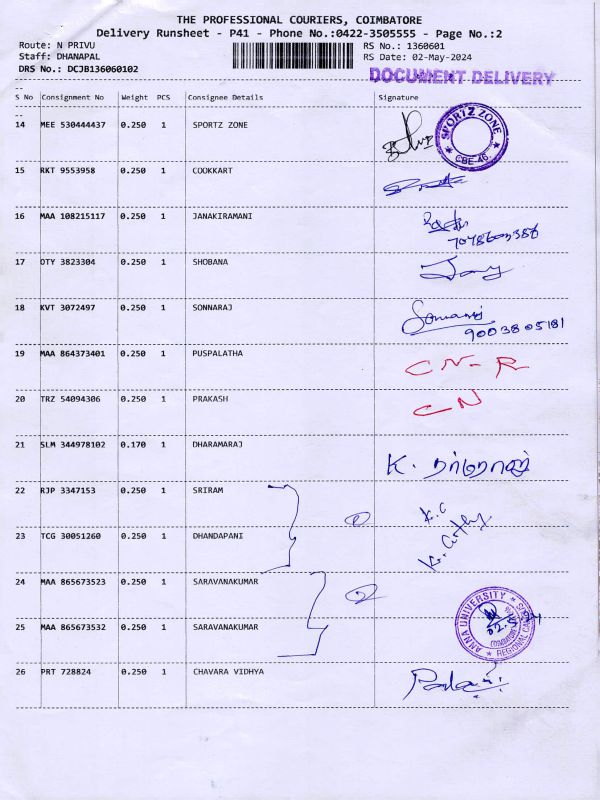 THE PROFESSIONAL COURIERS, COIMBATORE
Delivery Runsheet - P41 - Phone No.:0422-3505555 - Page No.:2
Route: N PRIVU RS No.: 1360601
Staff: DHANAPAL RS Date: 02-May-2024
DRS No.: DCJB136060102
DOCUMENT DELIVERY
--
S No Consignment No Weight PCS Consignee Details Signature
--
14 MEE 530444437 0.250 1 SPORTZ ZONE
SPORTZ ZONE
CBE-46
15 RKT 9553958 0.250 1 COOKKART
16 MAA 108215117 0.250 1 JANAKIRAMANI
17 OTY 3823304 0.250 1 SHOBANA
18 KVT 3072497 0.250 1 SONNARAJ
9003805181
19 MAA 864373401 0.250 1 PUSPALATHA CN-R
20 TRZ 54094306 0.250 1 PRAKASH CN
21 SLM 344978102 0.170 1 DHARAMARAJ K. தர்மராஜ்
22 RJP 3347153 0.250 1 SRIRAM 1 K.C
23 TCG 30051260 0.250 1 DHANDAPANI
24 MAA 865673523 0.250 1 SARAVANAKUMAR 2
ANNA UNIVERSITY
25 MAA 865673532 0.250 1 SARAVANAKUMAR
26 PRT 728824 0.250 1 CHAVARA VIDHYA